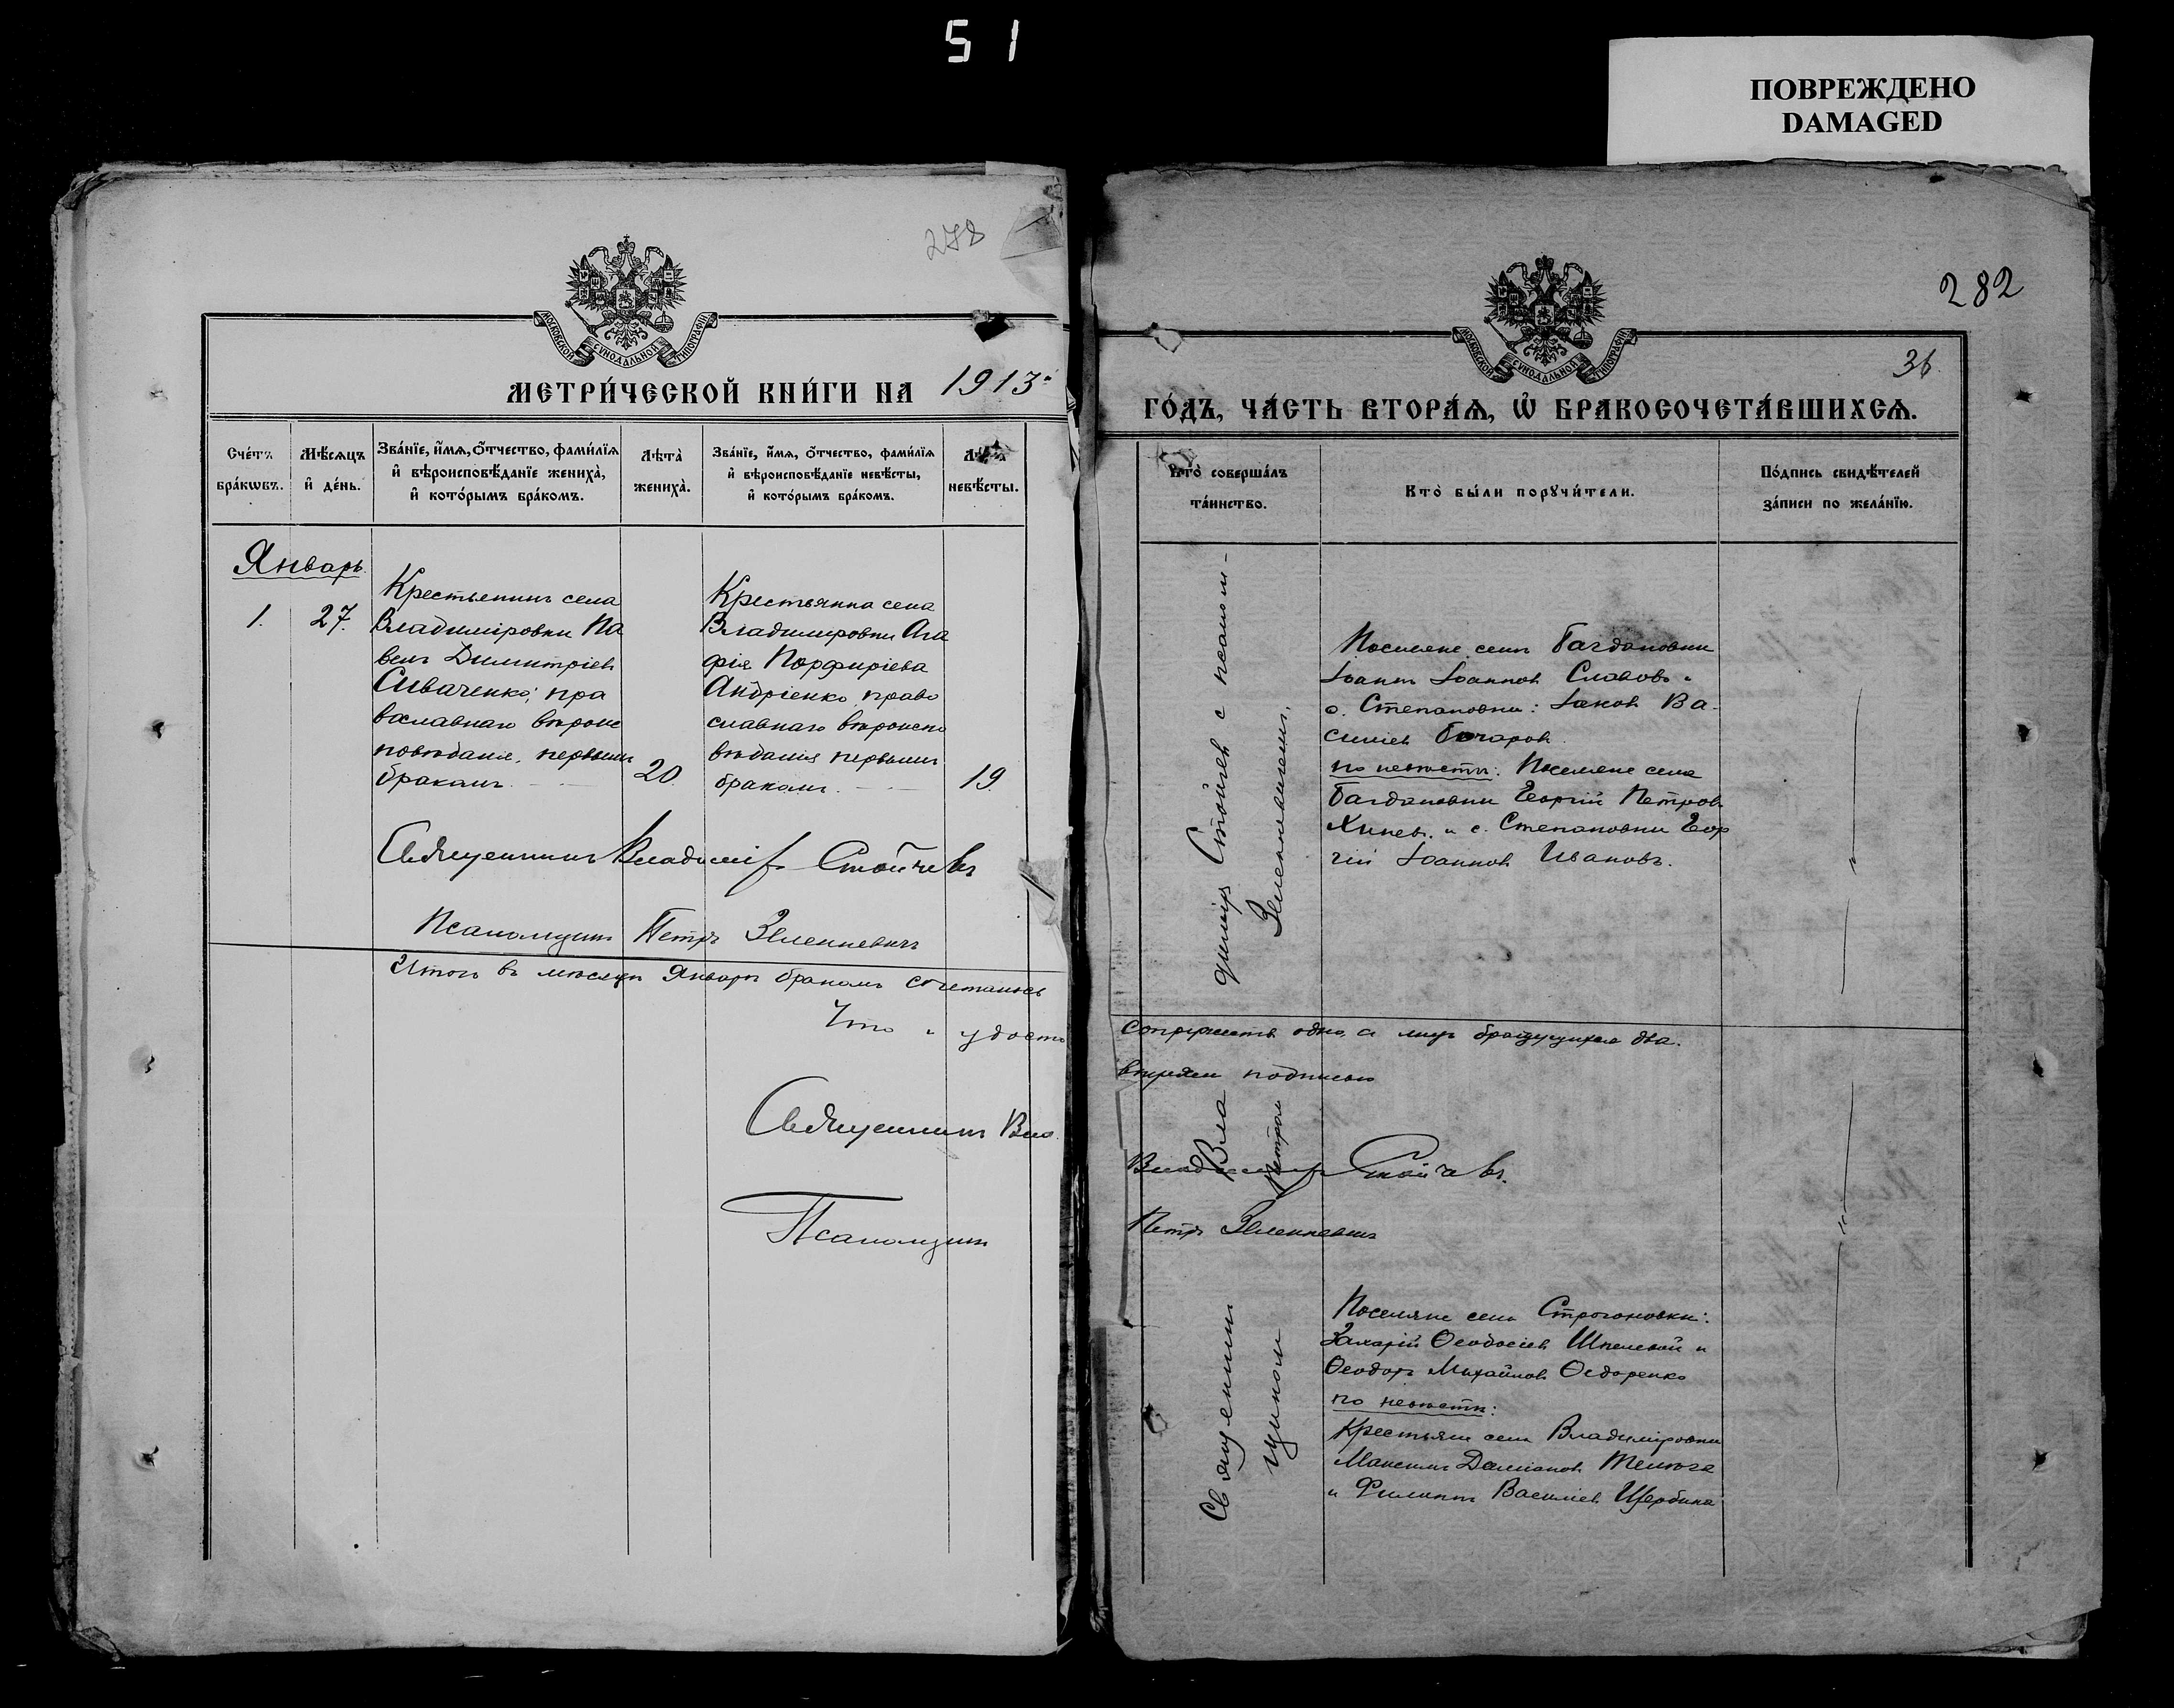 51
ПОВРЕЖДЕНО
DAMAGED
278
МОСКОВСКОЙ СѴНОДАЛЬНОЙ ТИПОГРАФІИ.
МЕТРИ́ЧЕСКОЙ КНИ́ГИ НА 1913
Сче́тъ бра́кωвъ.
Мѣ́сяцъ и҆ де́нь.
Зва́нїе, и҆́мѧ, ѻ҆́тчество, фами́лїѧ и҆ вѣроисповѣ́данїе жениха̀, и҆ кото́рымъ бра́комъ.
Лѣта̀ жениха̀.
Зва́нїе, и҆́мѧ, ѻ҆́тчество, фами́лїѧ и҆ вѣроисповѣ́данїе невѣ́сты, и҆ кото́рымъ бра́комъ.
Лѣта̀ невѣ́сты.
Январь.
1. 27.
Крестьянинъ села
Владимировки Па
велъ Димитріев
Сиваченко, пра
вославнаго вѣроис
повѣданія, первымъ
бракомъ.
20.
Крестьянка села
Владимировки Ага
фія Порфиріева
Андріенко, право
славнаго вѣроиспо
вѣданія первымъ
бракомъ.
19.
Священникъ Владимір Стойчевъ
Псаломщикъ Петръ Зеленкевичъ
Итого въ мѣсяцѣ Январѣ бракомъ сочеталось
Что и удосто
Священникъ Вла
Псаломщикъ
282
36
МОСКОВСКОЙ СѴНОДАЛЬНОЙ ТИПОГРАФІИ.
ГО́ДЪ, ЧА́СТЬ ВТОРА́Ѧ, Ѽ БРАКОСОЧЕТА́ВШИХСѦ.
Кто̀ соверша́лъ та́инство.
Кто̀ бы́ли порꙋчи́тели.
По́дпись свидѣ́телей за́писи по жела́нїю.
Священник Владимір Стойчев с псалом-
щиком Петром Зеленкевичем.
Поселяне села Багдановки
Іоаннъ Іоаннов Славовъ и
с. Степановки: Іаков Ва-
силіев Бочаров
по невѣстѣ: Поселяне села
Багдановки Георгій Петров
и с. Степановки Геор
гій Іоаннов Ивановъ.
супружествъ одно, а лицъ брачущихся два.
вѣряем подписью
Владимір Стойчевъ.
Петръ Зеленкевичъ
Поселяне села Строгоновки:
Захарій Ѳеодосіев Шпилевой и
Ѳеодоръ Михайлов Ѳедоренко
по невѣстѣ:
Крестьяне села Владимировки
Максимъ Даміанов
и Филиппъ Василіев Щербина